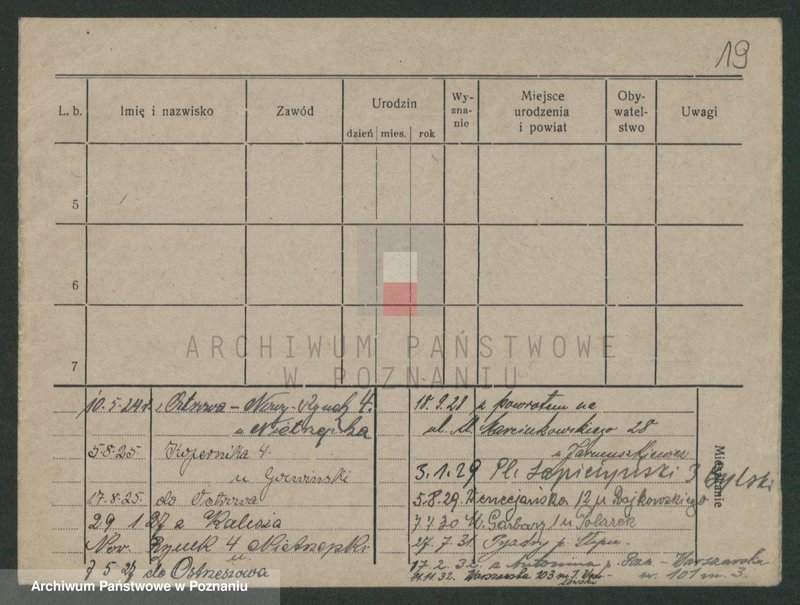 19
L. b. Imię i nazwisko Zawód Urodzin dzień mies. rok Wy-zna-nie Miejsce urodzenia i powiat Oby-watel-stwo Uwagi
5
6
7
ARCHIWUM PAŃSTWOWE
W POZNANIU
10.5.24 r. z Ostrowa – Nowy-Rynek 4.
u Nietrzepka
5.8.25. Kopernika 4
u
17.8.25. do Ostrowa
29 1 27 z Kalisza
Now. Rynek 4 u Nietrzepki
7 5 27 do Ostrzeszowa
18.9.28 z powrotem na
ul. M. Marcinkowskiego 28
u Jaruszkiewicz
3.1.29 Pl. Sapieżyński 3
5.8.29. Wenecjańska 12 u Bajkowskiego
7.4.30 W. Garbary 1 u Polarek
27.7.31
17.2.32 z Antonina p. – Warszawska
nr. 101 m. 3.
14.11.32. Warszawska 103 m. 7.
Mieszkanie
Archiwum Państwowe w Poznaniu